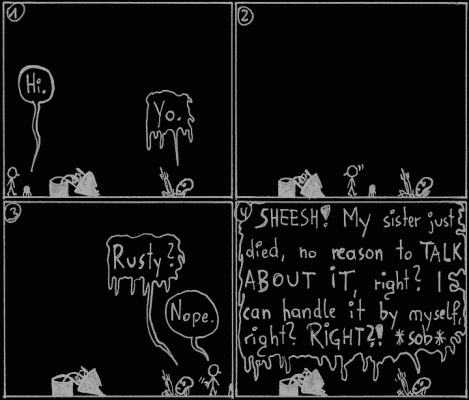 1
Hi.
Yo.
2
3
Rusty?
Nope.
4
SHEESH! My sister just
died, no reason to TALK
ABOUT IT, right? IS
can handle it by myself,
right? RIGHT?! *sob*